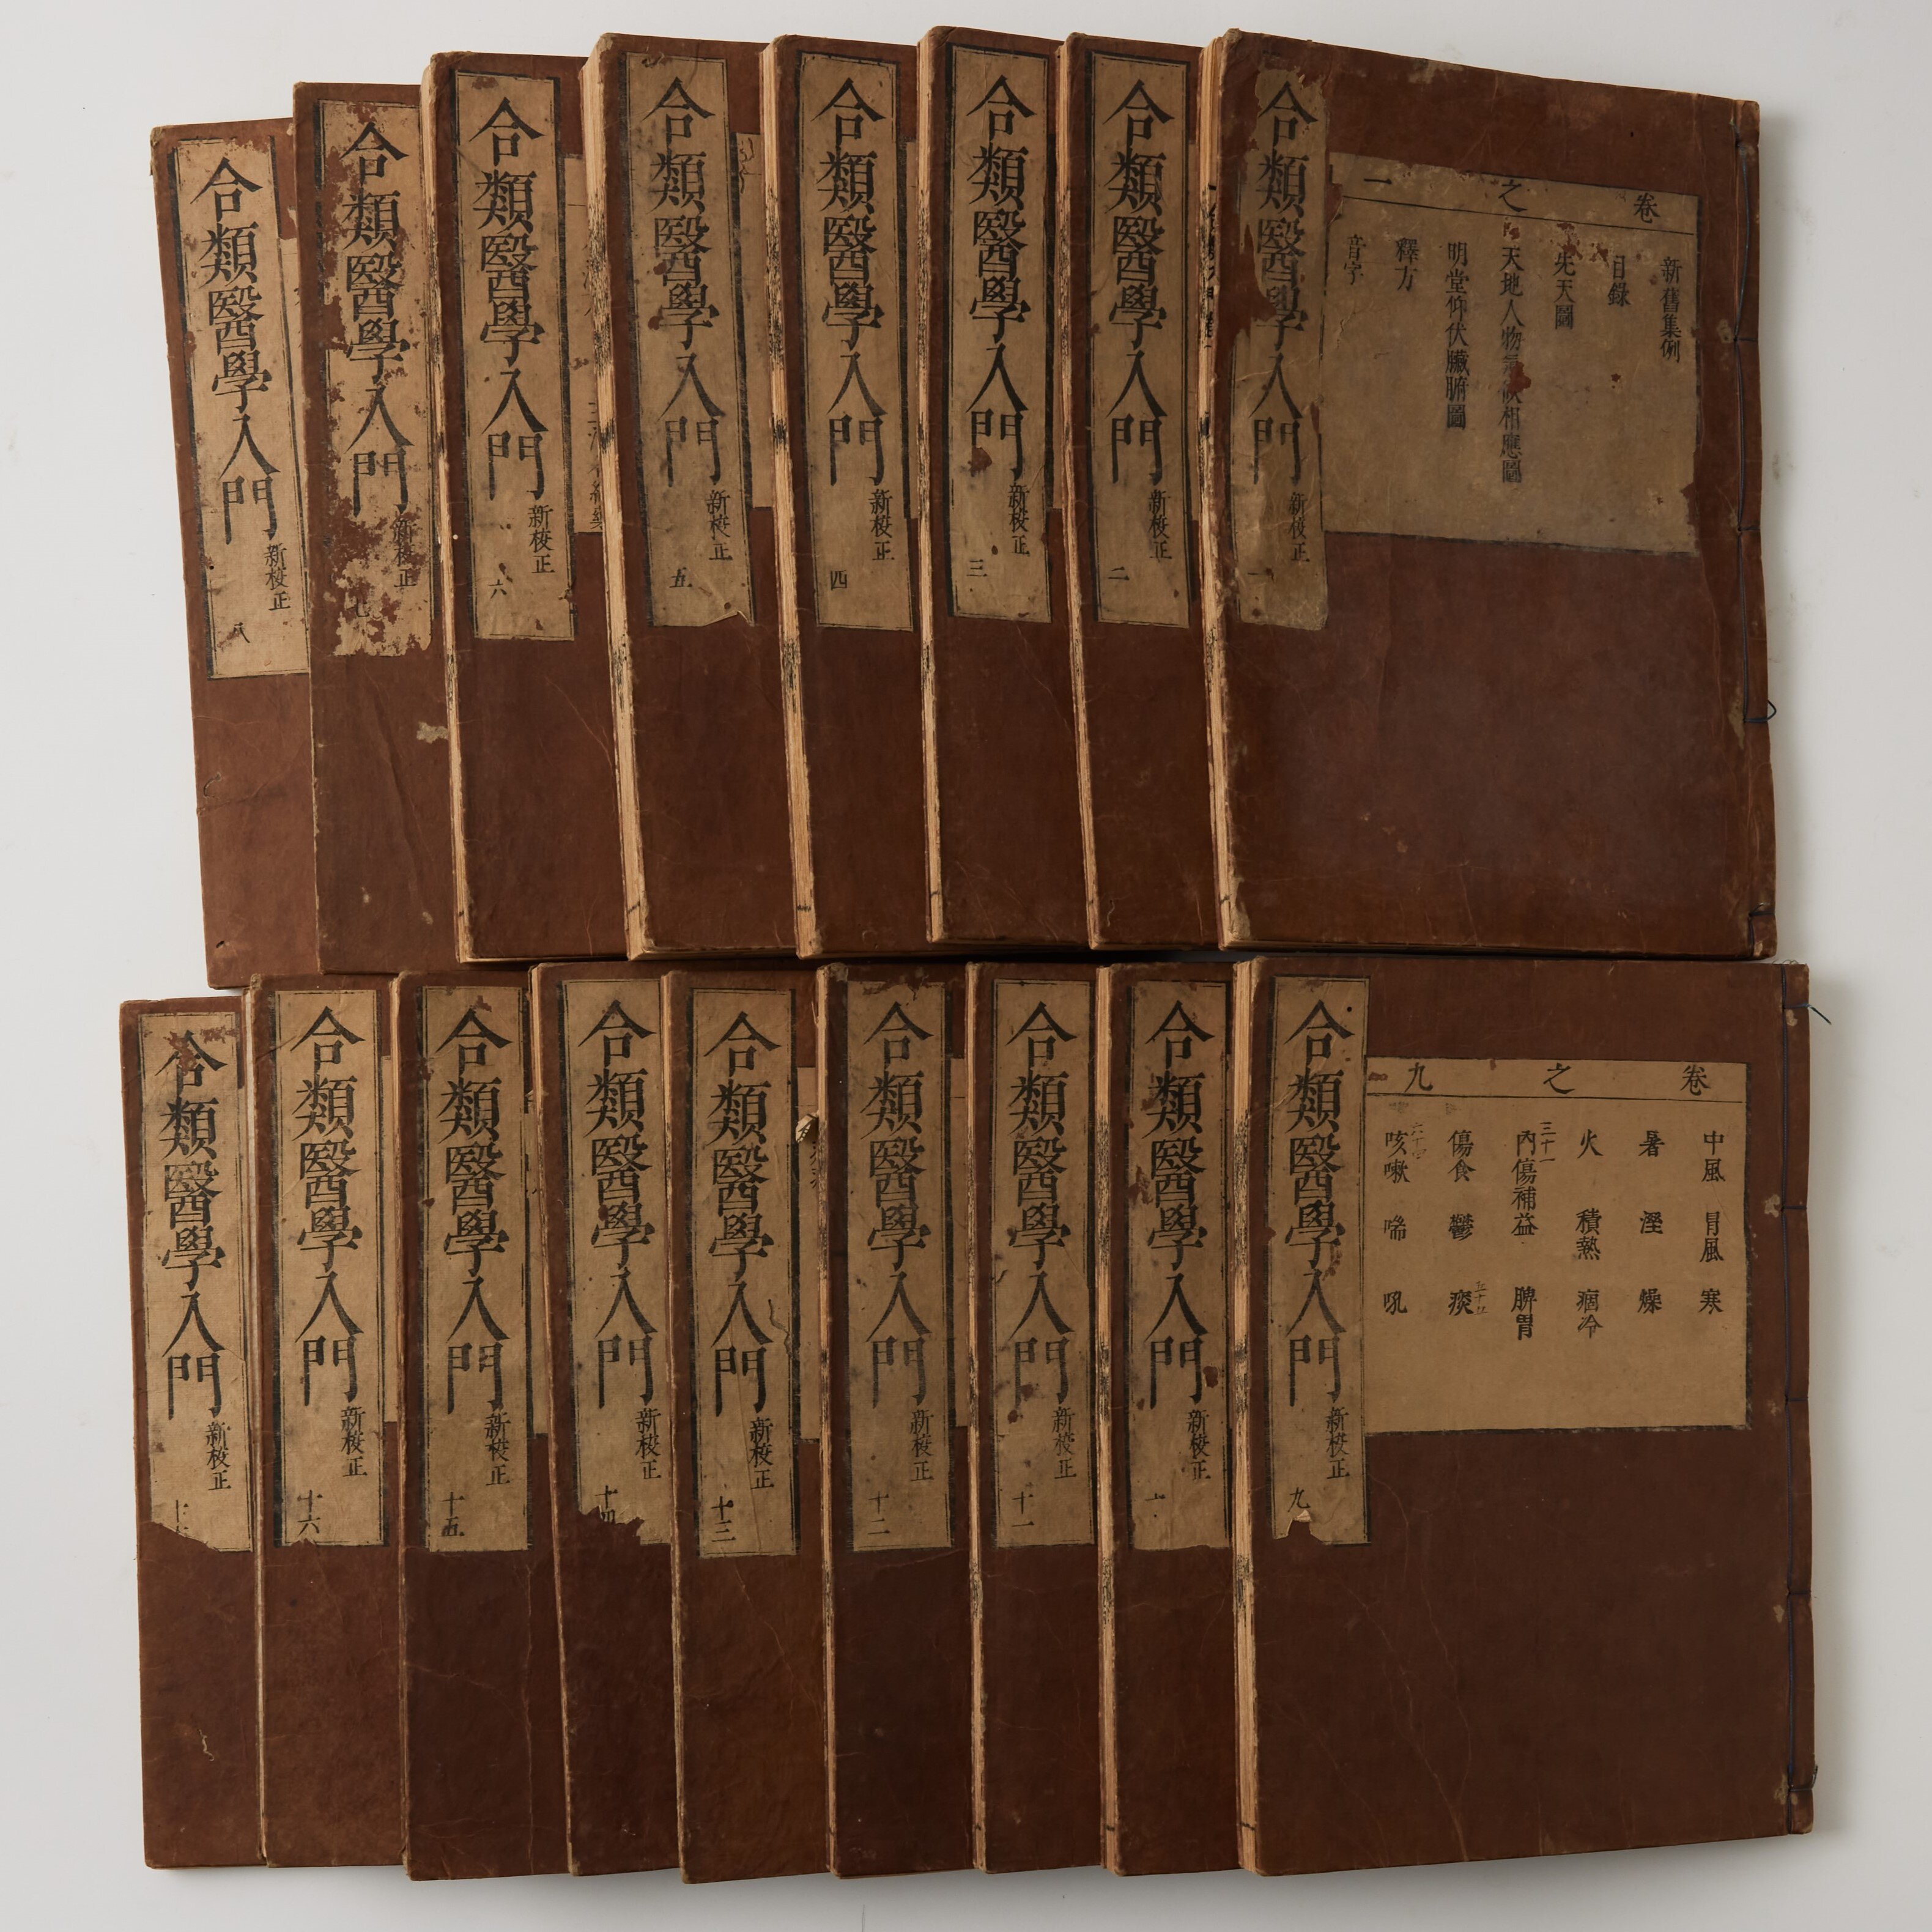 合類醫學入門 新校正 一
卷之一
新舊集例
目録
先天圖
天地人物氣候相應圖
明堂仰伏臟腑圖
釋方
音字
合類醫學入門 新校正 二
合類醫學入門 新校正 三
合類醫學入門 新校正 四
合類醫學入門 新校正 五
合類醫學入門 新校正 六
合類醫學入門 新校正 七
合類醫學入門 新校正 八
合類醫學入門 新校正 九
卷之九
中風 冒風 寒
暑 溼 燥
火 積熱 痼冷
三十一
内傷補益 脾胃
傷食 鬱 痰
五十五
咳嗽 喘 吼
合類醫學入門 新校正 十
合類醫學入門 新校正 十一
合類醫學入門 新校正 十二
合類醫學入門 新校正 十三
合類醫學入門 新校正 十四
合類醫學入門 新校正 十五
合類醫學入門 新校正 十六
合類醫學入門 新校正 十